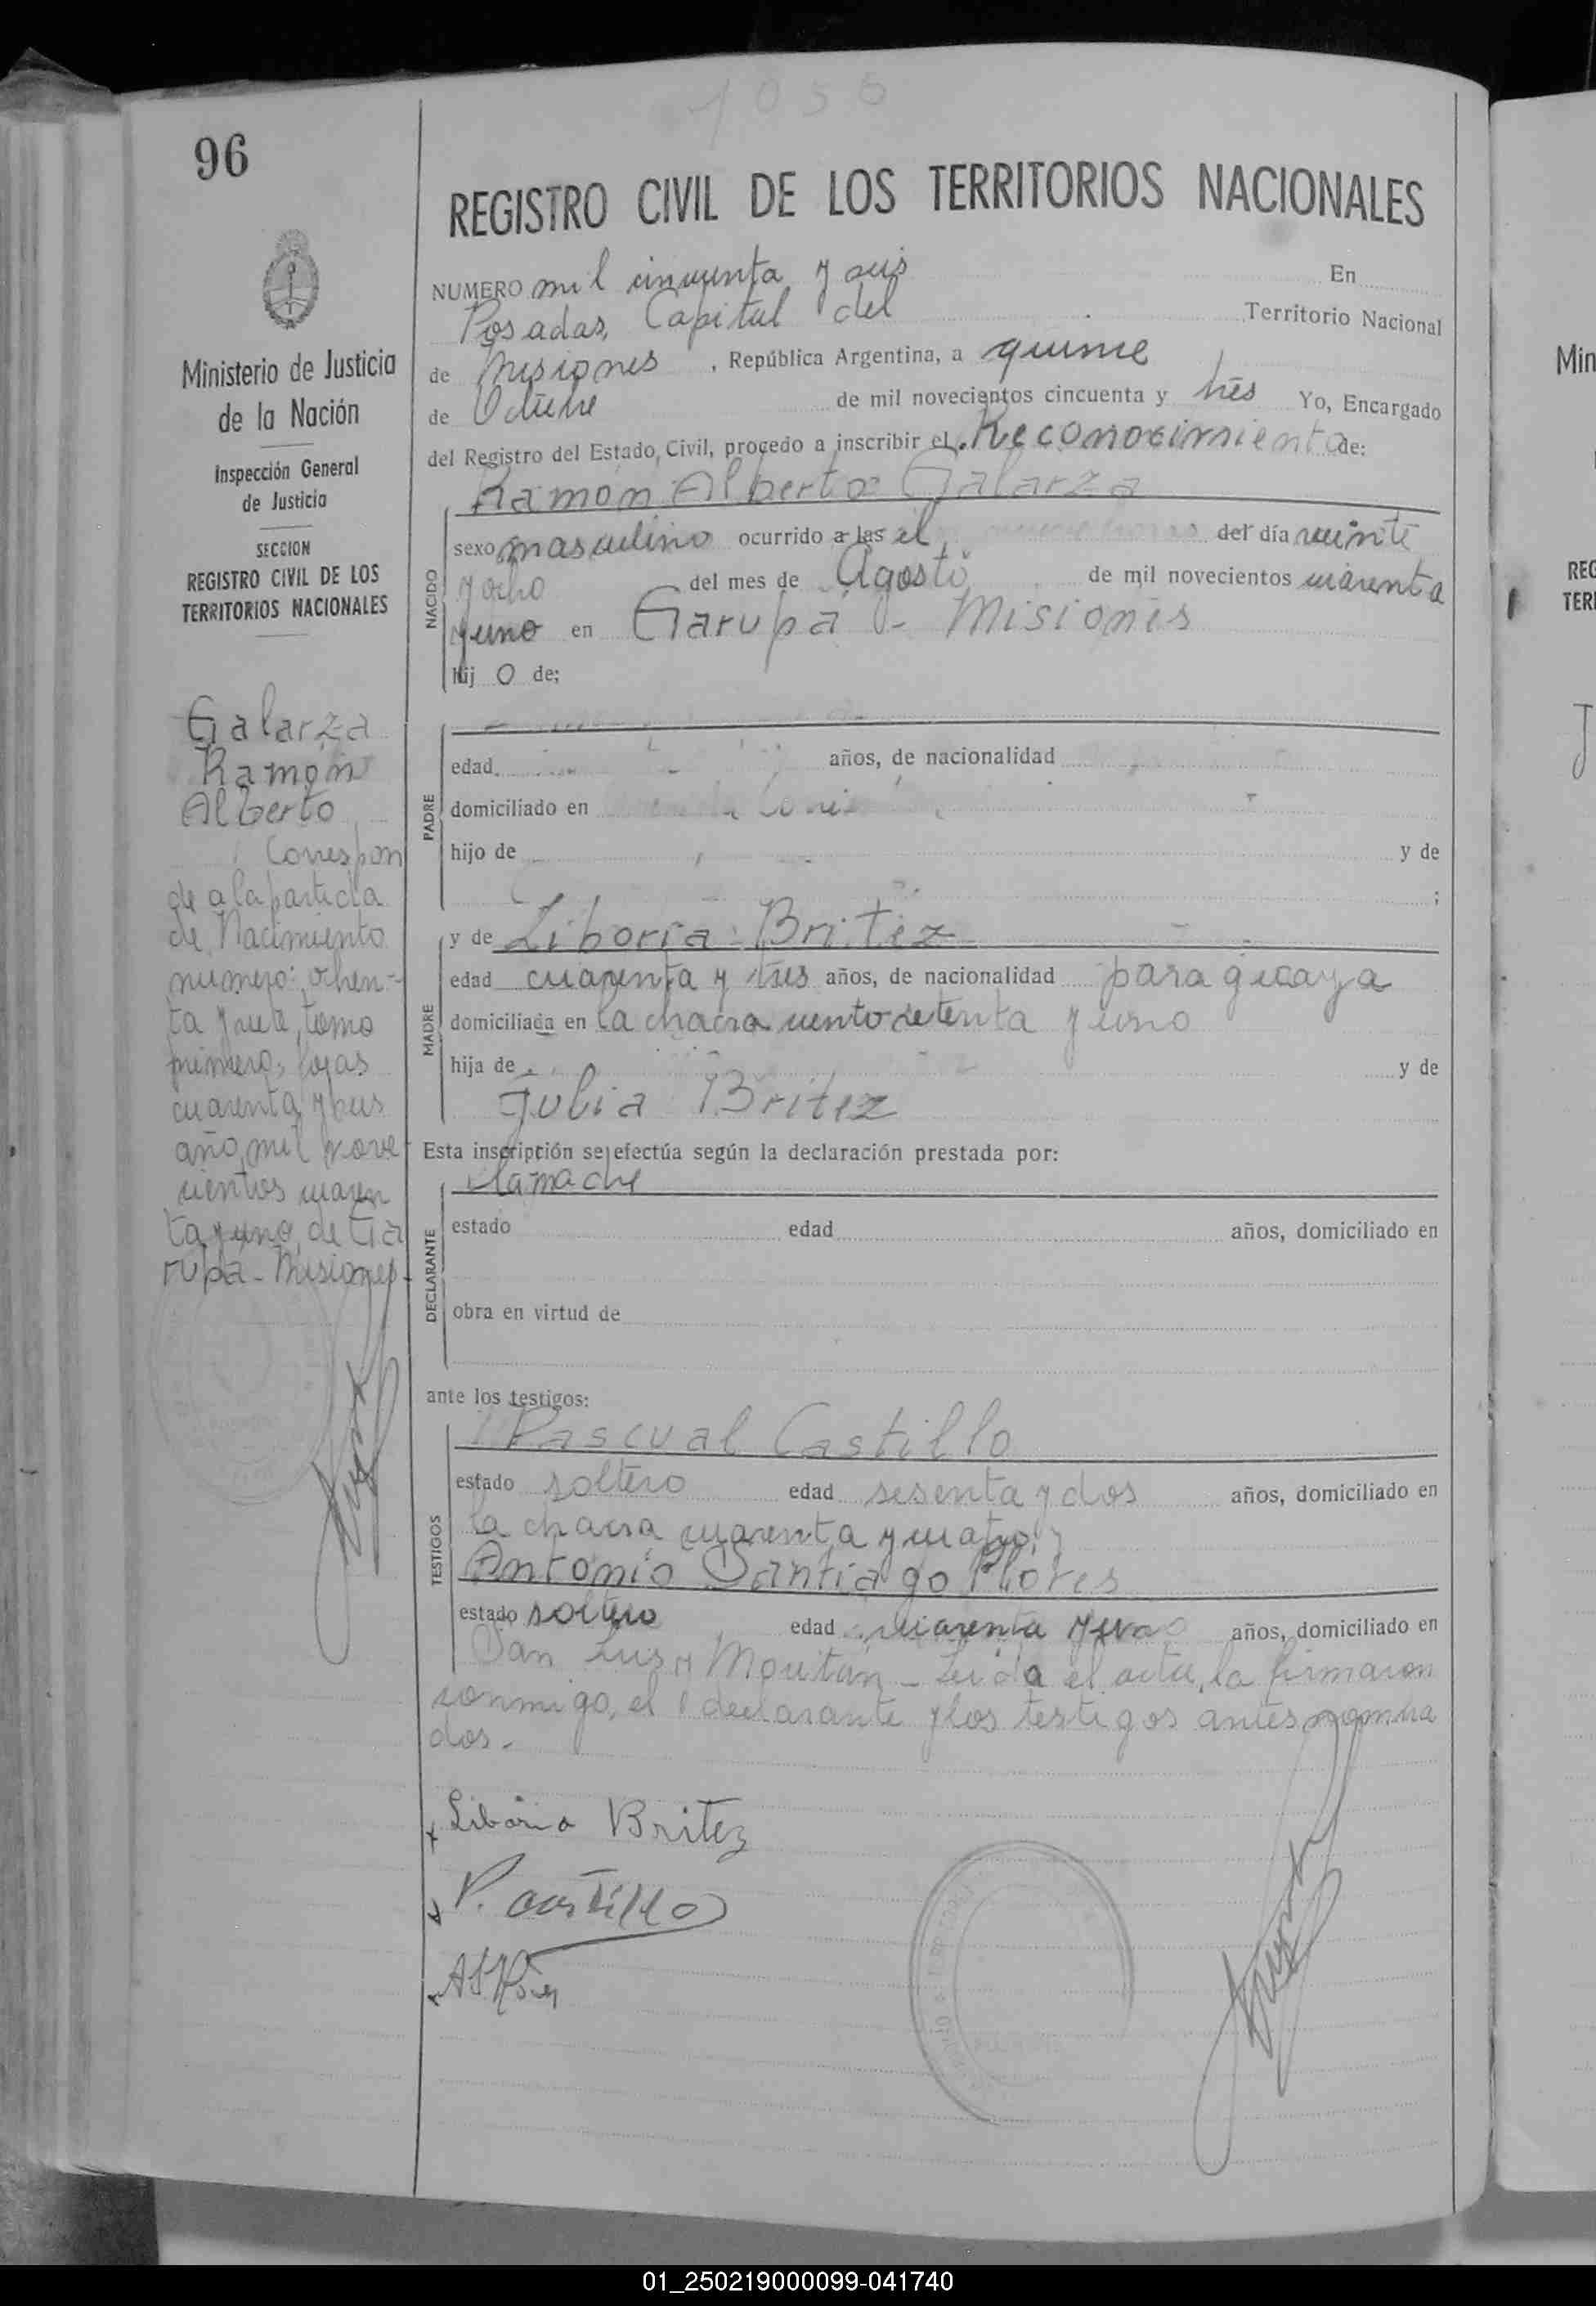 1056
96
REGISTRO CIVIL DE LOS TERRITORIOS NACIONALES
NUMERO mil cincuenta y seis En
Posadas, Capital del Territorio Nacional
de Misiones, República Argentina, a quince
de Octubre de mil novecientos cincuenta y tres Yo, Encargado
del Registro del Estado Civil, procedo a inscribir el Reconocimiento de:
Ramón Alberto Galarza
NACIDO
sexo masculino ocurrido a las el del día veinte
y ocho del mes de Agosto de mil novecientos cuarenta
y uno en Garupá - Misiones
hij o de;
PADRE
edad años, de nacionalidad
domiciliado en
hijo de y de
;
MADRE
y de Liboria Britez
edad cuarenta y tres años, de nacionalidad paraguaya
domiciliada en la chacra ciento setenta y uno
hija de y de
Julia Britez
Esta inscripción se efectúa según la declaración prestada por:
DECLARANTE
la madre
estado edad años, domiciliado en
obra en virtud de
ante los testigos:
TESTIGOS
Pascual Castillo
estado soltero edad sesenta y dos años, domiciliado en
la chacra cuarenta y cuatro y
Antonio Santiago Flores
estado soltero edad cuarenta y uno años, domiciliado en
San Luis y Moritán - Leida el acta, la firmaron
conmigo, el declarante y los testigos antes nombra
dos.-
Liboria Britez
P. Castillo
Ministerio de Justicia
de la Nación
Inspección General
de Justicia
SECCION
REGISTRO CIVIL DE LOS
TERRITORIOS NACIONALES
Galarza
Ramón
Alberto
Correspon
de a la partida
de Nacimiento
número: ochen-
ta y siete, tomo
primero, fojas
cuarenta y seis
año mil nove
cientos cuaren
ta y uno, de Ga
rupá - Misiones.
Min
REG
TERI
01_250219000099-041740